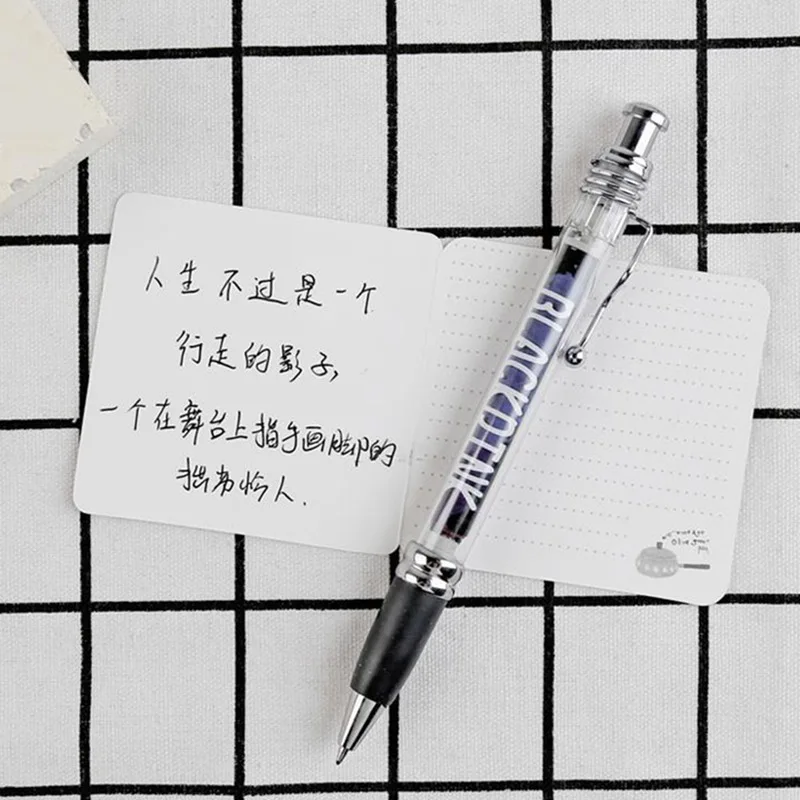 人生不过是一个
行走的影子,
一个在舞台上指手画脚的
拙劣伶人.
BLACKDINK